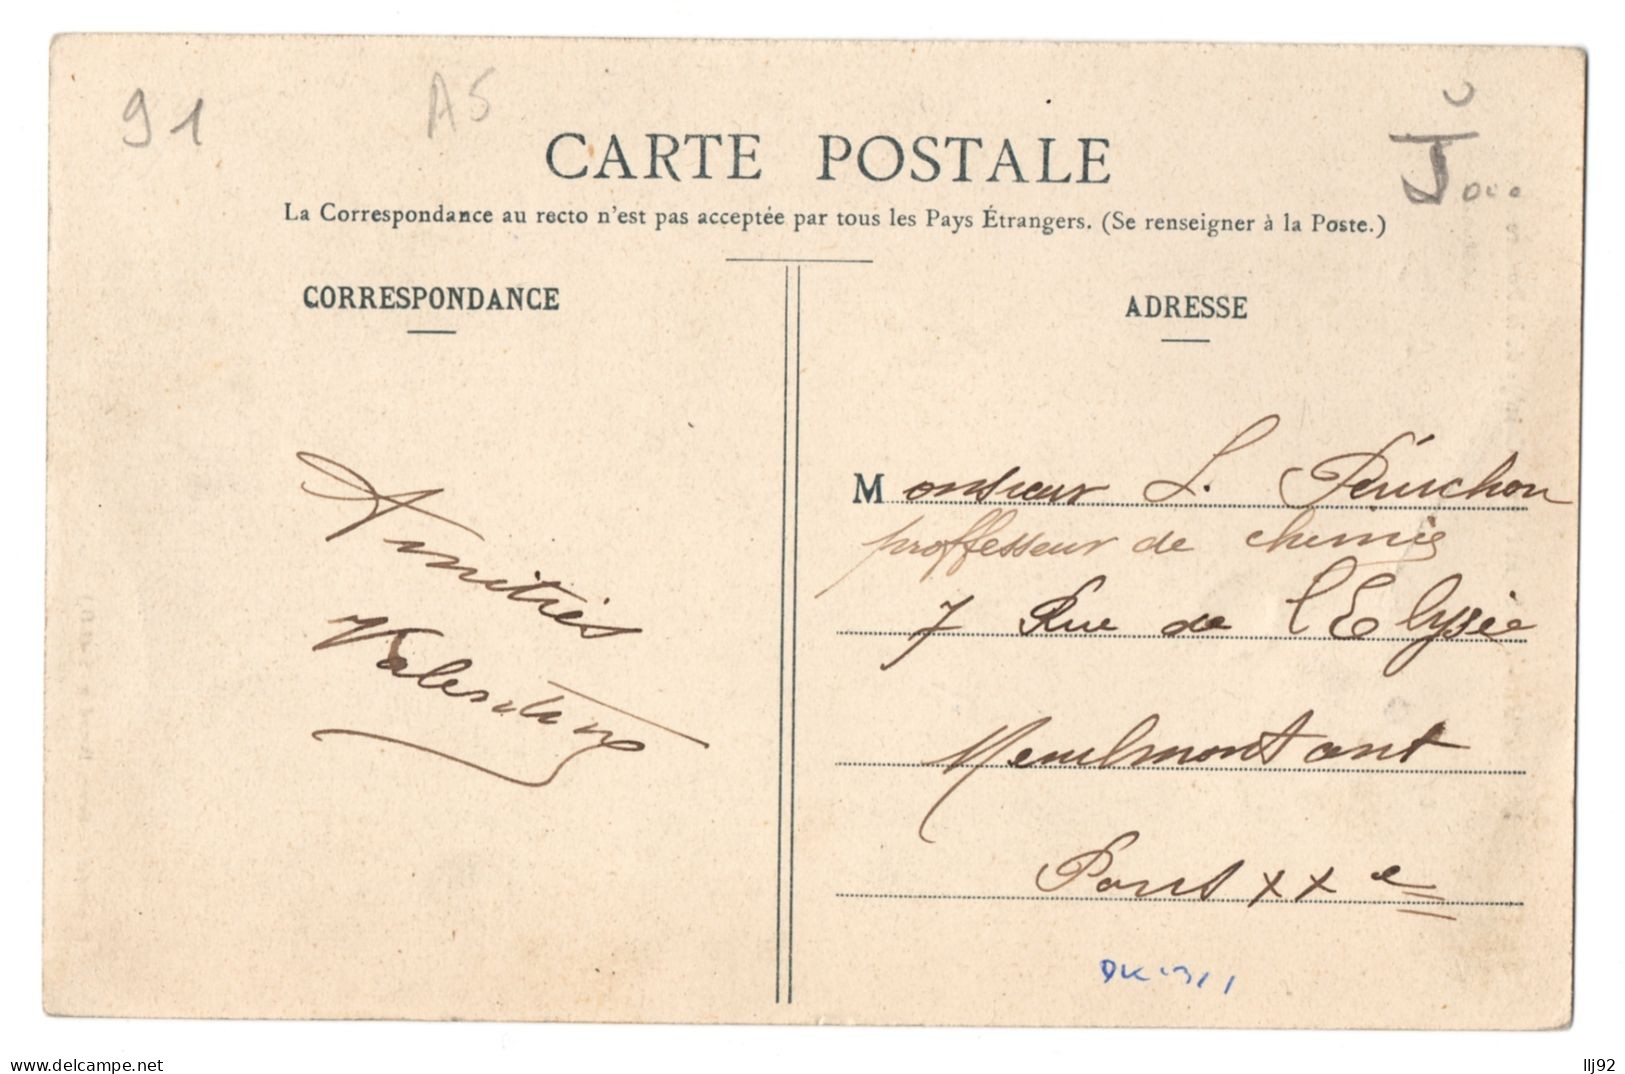 91
A5
CARTE POSTALE
La Correspondance au recto n'est pas acceptée par tous les Pays Étrangers. (Se renseigner à la Poste.)
CORRESPONDANCE
ADRESSE
Amitiés
Valentine
Monsieur L. Peuchon
proffesseur de chimie
7 Rue de l'Elysée
Menilmontant
Paris XXe
www.delcampe.net
llj92